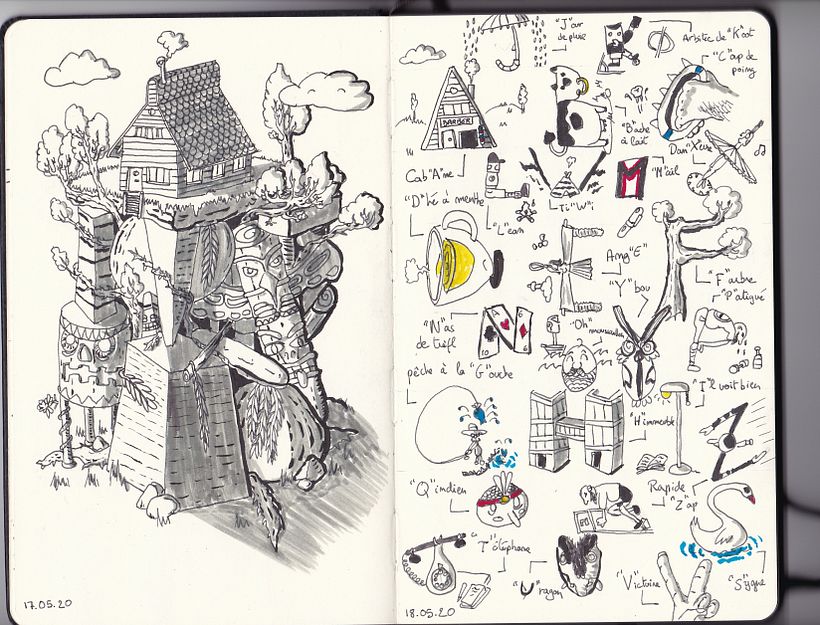 17.05.20
"J"our
de pluie
Artiste de "K"oot
"C"oup de
poing
BARBER
"B"ache
à lait
Dan"X"euse
Cab"A"ne
"M"ail
"D"hé à menthe
"L"ean
Ti"W"i
Ang"E"
"Y"bou
"F"arbre
"P"atigué
"N"as
de trèfl
"Oh"
A
10
6
pêche à la "G"ouche
"I"l voit bien
"H"immeuble
"Q"indien
Rapide
"Z"ap
"T"éléphone
"U"ragon
"V"ictoire
"S"ygne
18.05.20